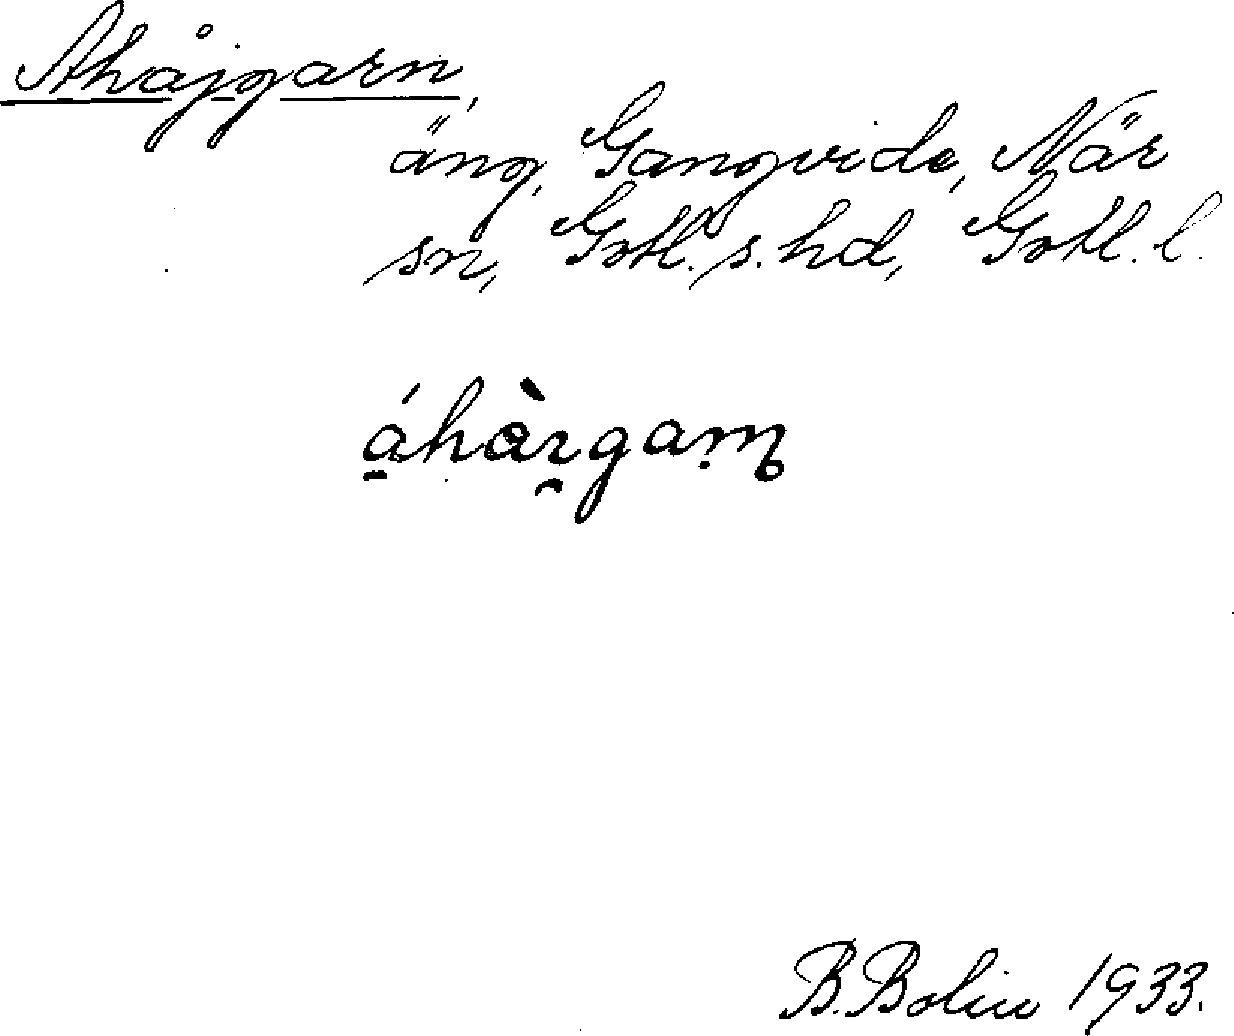 Ahåjgarn,
äng, Gangvide, När
sn, Gotl. s. hd, Gotl. l.
B. Bolin 1933.